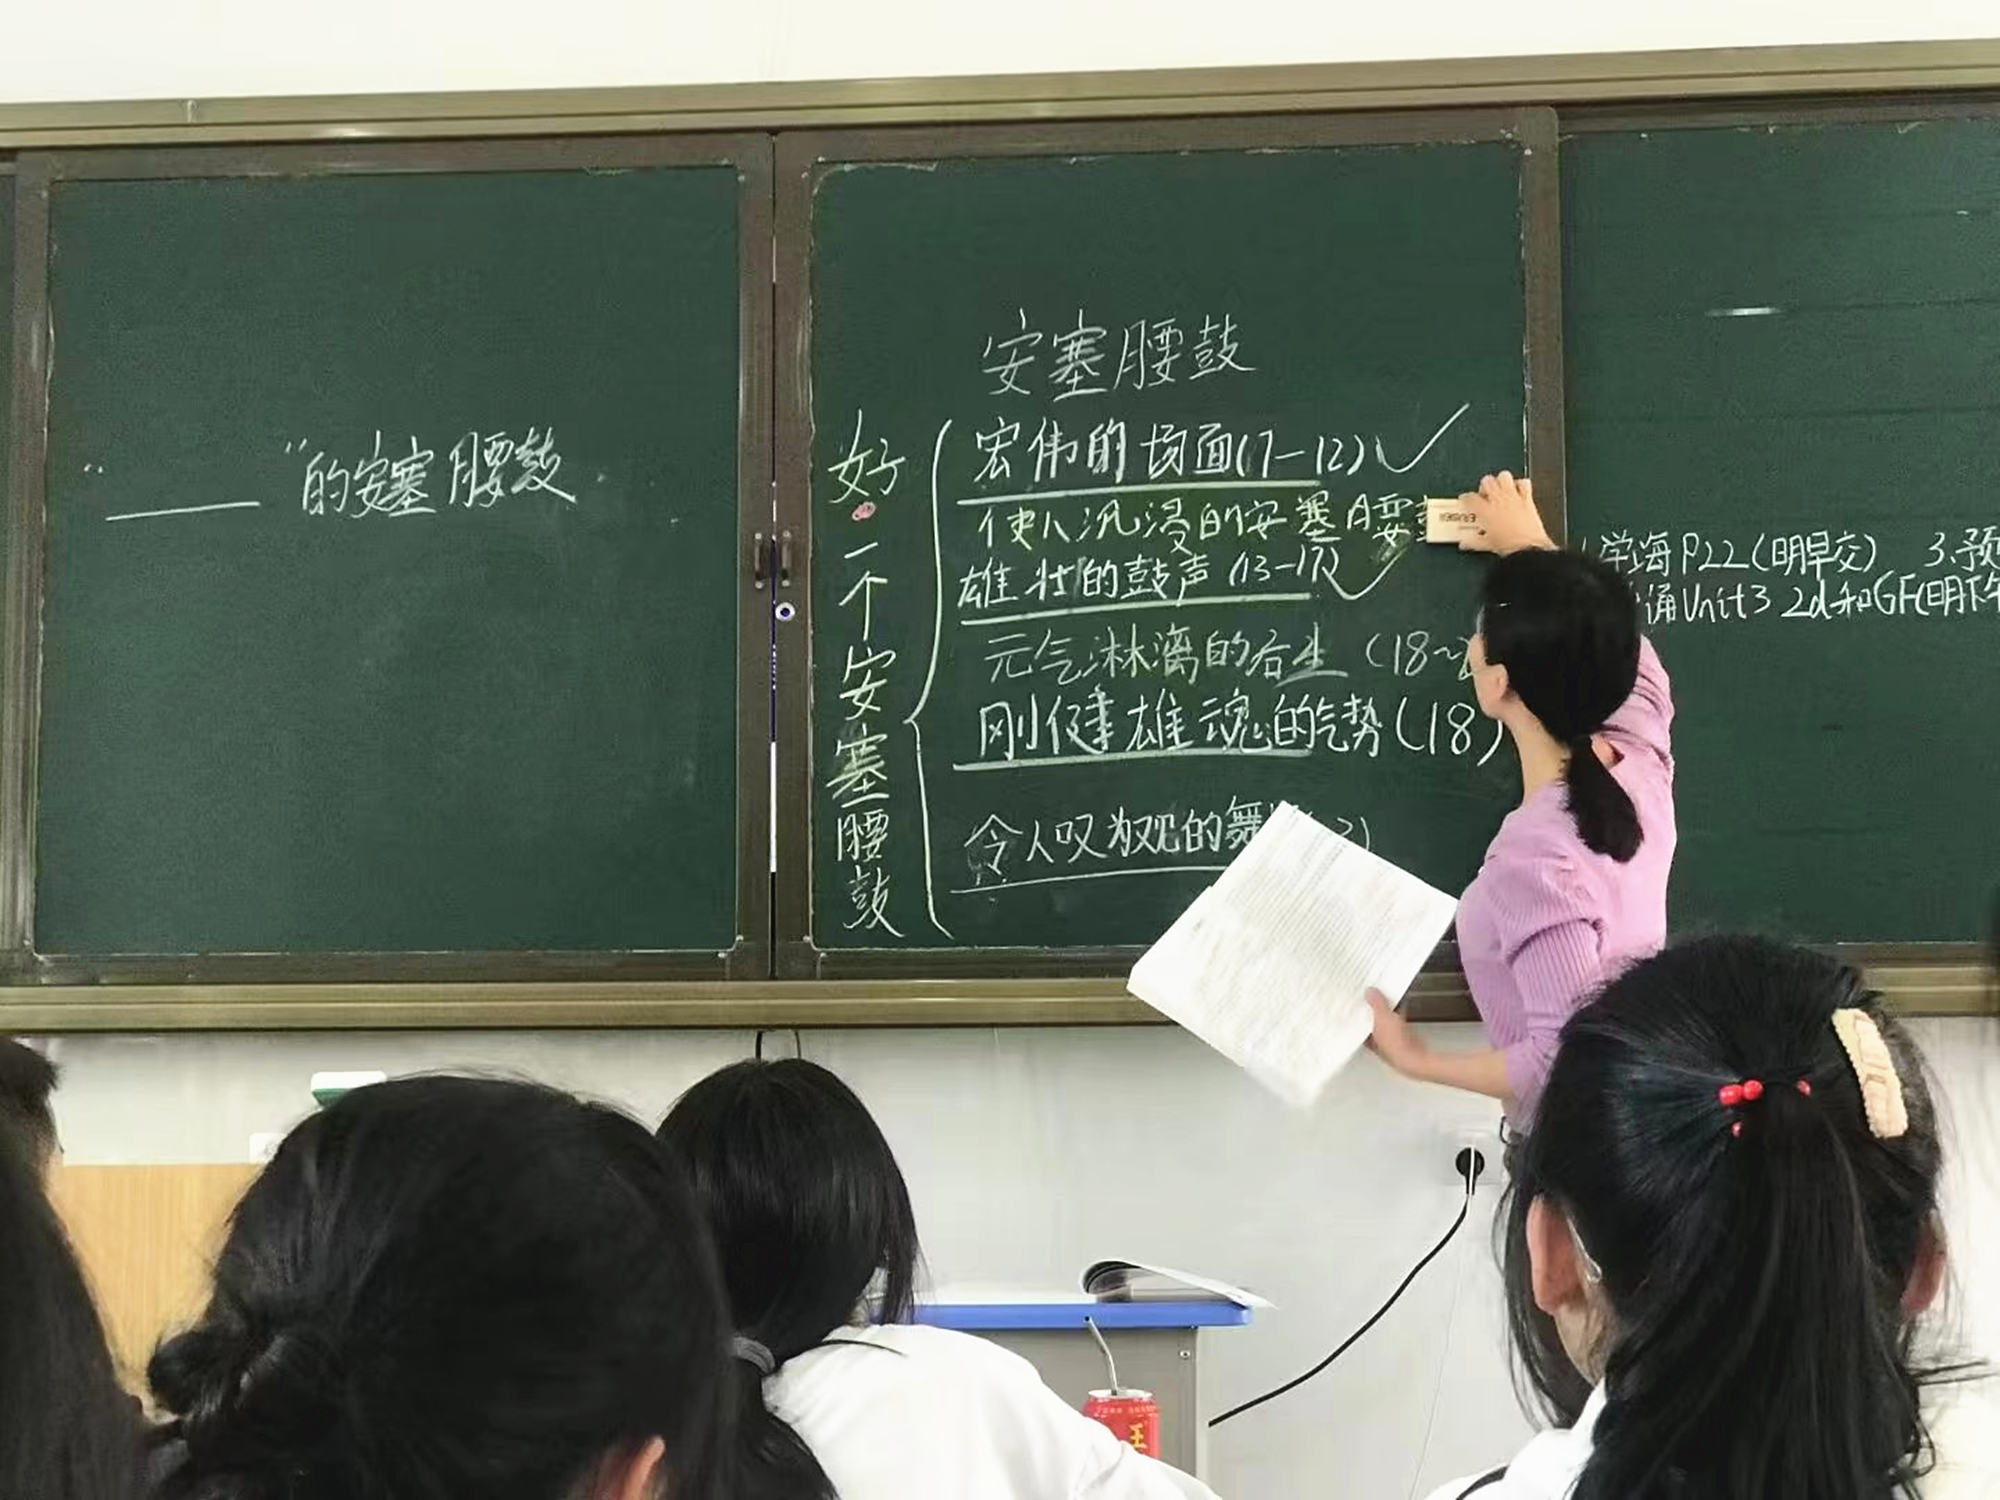 “____”的安塞腰鼓
安塞腰鼓
好一个安塞腰鼓
宏伟的场面(7—12)
使人沉浸的安塞腰
雄壮的鼓声(13—17)
元气淋漓的后生(18~
刚健雄魂的气势(18)
令人叹为观的舞
学海P22(明早交) 3.预
诵Unit3 2d和GF(明下午
ERASER
王